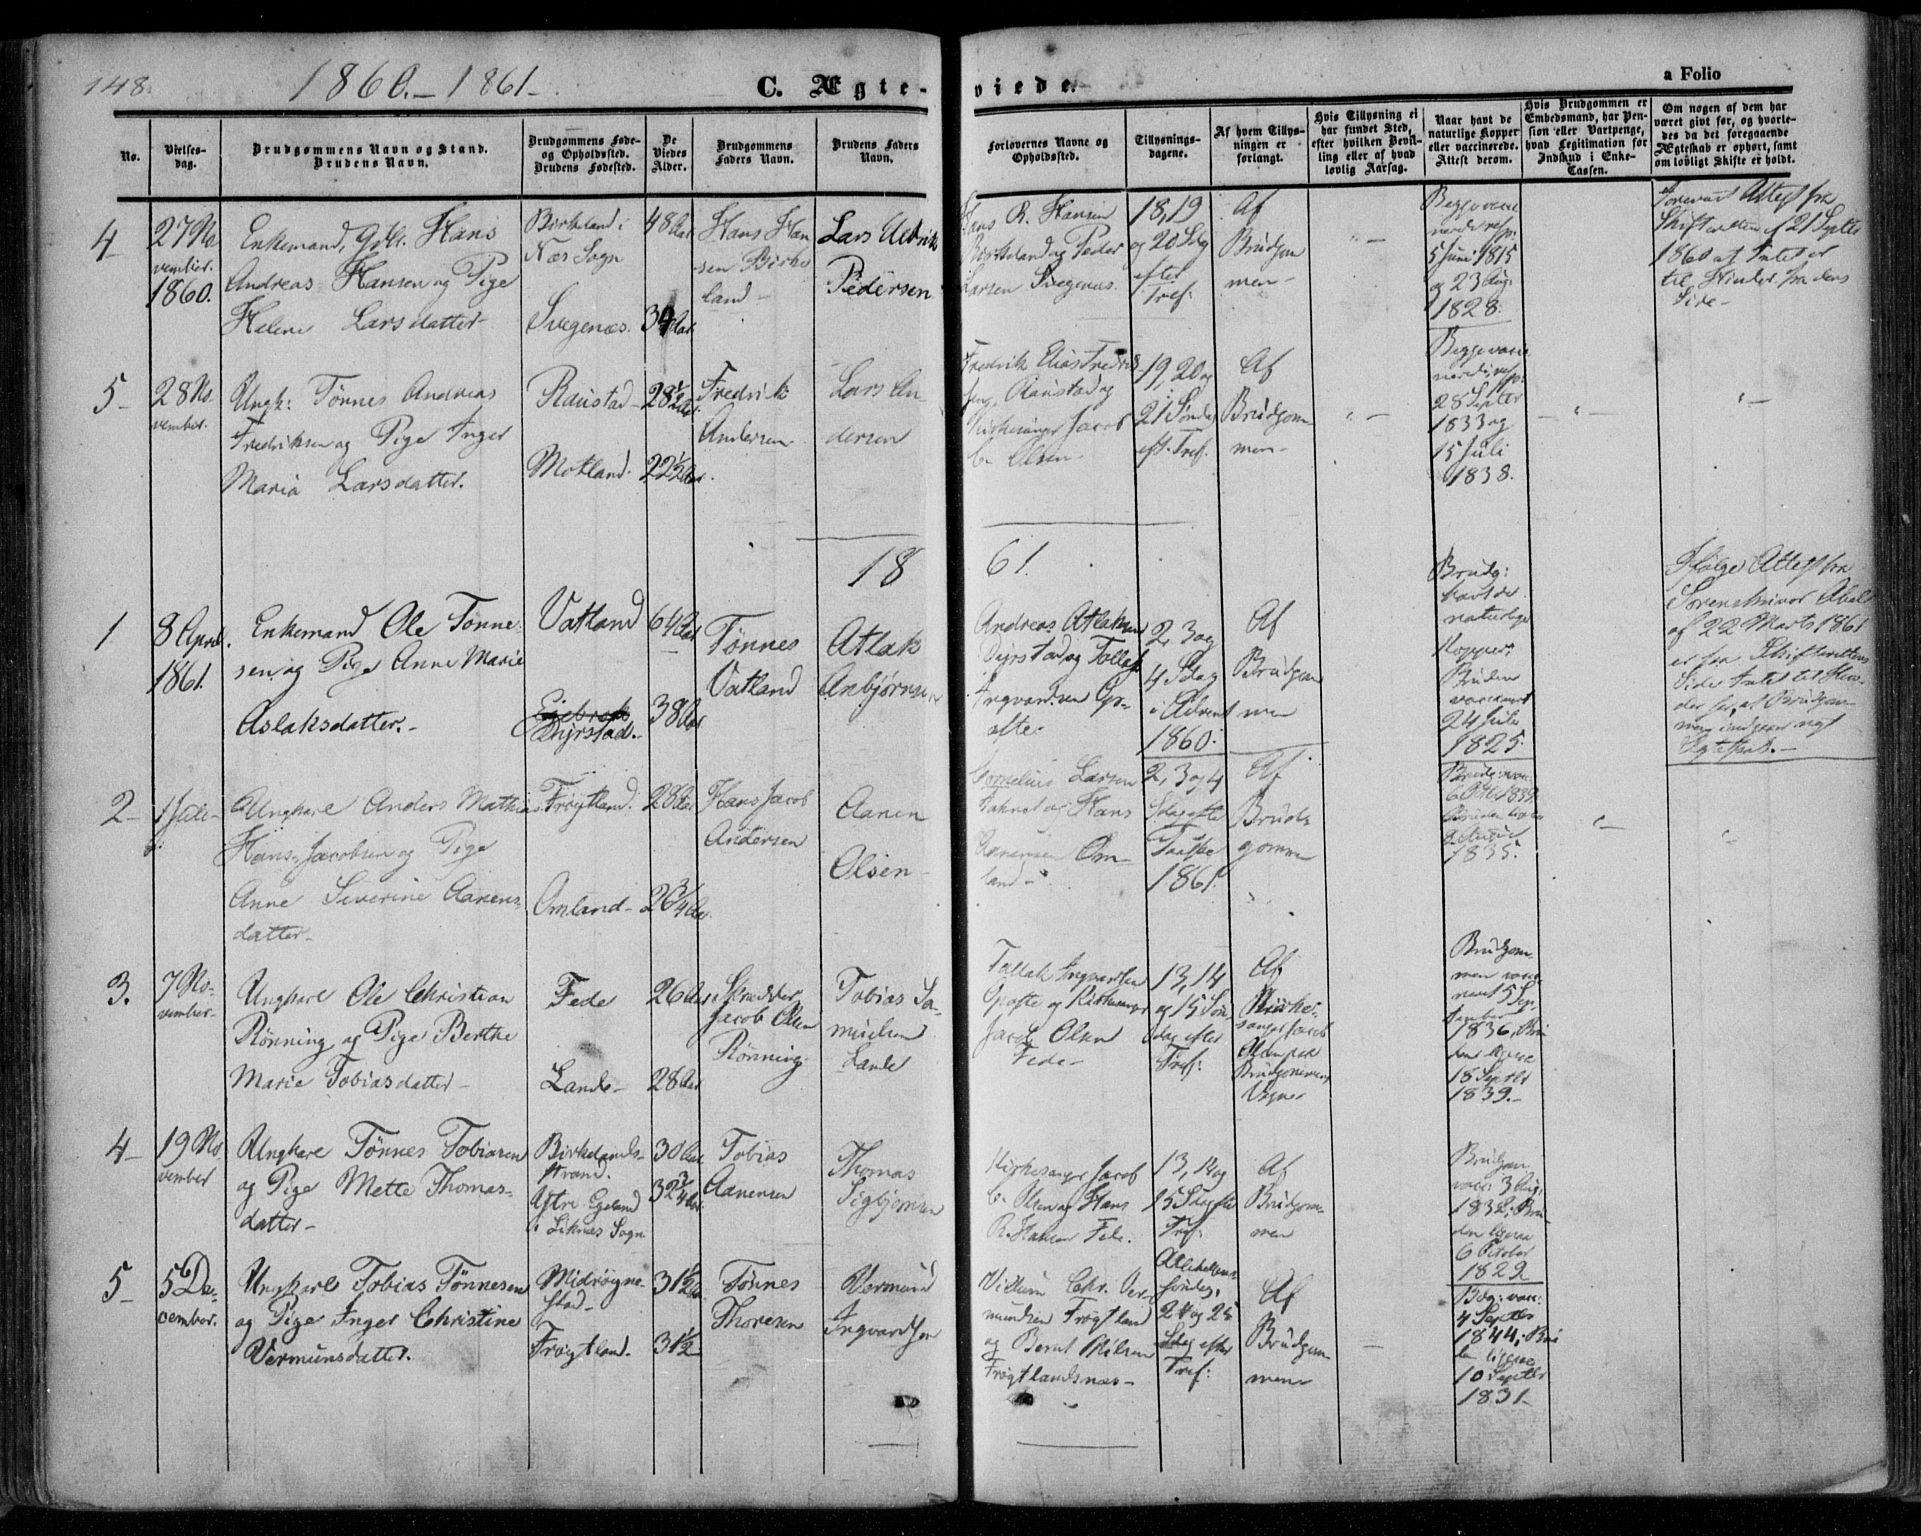 148.
1860.–1861–
C. Ægteviede.
a Folio
No.
Vielsesdag.
Brudgommens Navn og Stand.
Brudens Navn.
Brudgommens Føde-
og Opholdssted.
Brudens Fødested.
De
Viedes
Alder.
Brudgommens
Faders Navn.
Brudens Faders
Navn.
Forlovernes Navne og
Opholdssted.
Tillysnings-
dagene.
Af hvem Tillys-
ningen er
forlangt.
Hvis Tillysning ei
har fundet Sted,
efter hvilken Bevil-
ling eller af hvad
lovlig Aarsag.
Naar havt de
naturlige Kopper
eller vaccinerede.
Attest derom.
Hvis Brudgommen er
Embedsmand, har Pen-
sion eller Vartpenge,
hvad Legitimation for
Indskud i Enke-
Cassen.
Om nogen af dem har
været givt før, og hvorle-
des da det foregaaende
Ægteskab er ophørt, samt
om lovligt Skifte er holdt.
4
27 No
vember.
1860.
Enkemand, Gbr. Hans
Andreas Hansen og Pige
Helene Larsdatter
Birkeland i
Næs Sogn
Svegenæs.
48 Aar
34 Aar
Hans Han
sen Birke
land –
Lars Uldrik
Pedersen
Hans R. Hansen
Birkeland og Peder
Larsen Svegenæs.
18, 19
og 20 Sdg
efter
Tref:
Af
Brudgom
men –
Begge vacci
nerede resp.
5 Juni 1815
og 23 Aug.
1828.
Forevist Attest fra
Skifteretten af 21 Septbr
1860 at Intet er
til Hinder fra dens
Side –
5 –
28 No
vember.
Ungk: Tønnes Andreas
Fredriksen og Pige Inger
Maria Larsdatter.
Raustad –
Motland.
28½ Aar.
22½ Aar.
Fredrik
Andersen
Lars An
dersen
Fredrik Elias Fredriks
sen, Raustad og
Kirkesanger Jacob
C. Olsen –
19, 20 og
21 Søndag
eft. Tref.
Af
Brudgom
men –
Begge vacci
nerede, resp:
28 Septbr
1833 og
15 Juli
1838.
1861.
1
8 April.
1861.
Enkemand Ole Tønne-
sen og Pige Anne Marie
Aslaksdatter. –
Vatland
Dyrstad. –
64 Aar
38 Aar
Tønnes
Vatland
Atlak
Anbjørnsen
Andreas Atlaksen
Dyrstad og Tollak
Ingvardsen Op-
ofte.
2, 3 og
4 Sdag
i Advent
1860.
Af
Brudgom
men
Brudg:
havt de
naturlige
Kopper,
Bruden
vaccineret
24 Juli
1825.
Ifølge Attest fra
Sorenskriver
af 22 Marts 1861
er fra Skifterettens
Side Intet til Hin-
der for, at Brudgom-
men indgaar nyt
Ægteskab. –
2 –
1 Juli –
Ungkare Anders Mathias
Hans Jacobsen og Pige
Anne Severine Aanens-
datter –
Frøytland.
Omland –
28 Aar.
26¾ Aar.
Hans Jacob
Andersen
Aanen
Olsen –
Cornelius Larsen
og Hans
Aanensen Om-
land –
2, 3 og 4
Sdag efter
Paaske
1861.
Af
Brud-
gommen
1839.
1835.
3.
7 No-
vember –
Ungkare Ole Christian
Rønning og Pige Berthe
Marie Tobiasdatter –
Fede
Lande –
26 Aar
28 Aar
Skrædder
Jacob Olsen
Rønning
Tobias Sa-
muelsen
Lande
Tollak Ingvardsen
Opofte og Kirkesanger
Jacob Olsen
Fede –
13, 14
og 15 Søn
dag efter
Tref:
Af
Kirke-
sanger Jacob
Olsen paa
Brudgommens
Vegne
Brudgom
men vacci
neret 5 Sep
tember
1836, Bru
den ligesaa
18 Septbr
1839. –
4 –
19 No
vember
Ungkare Tønnes Tobiasen
og Pige Mette Thomas-
datter –
Birkelands-
strand.
Østre Egeland
i Liknes Sogn
30 Aar
32¾ Aar.
Tobias
Aanensen
Thomas
Sigbjørnsen
Kirkesanger Jacob
C. Olsen og Hans
R. Hansen Fede.
13, 14 og
15 Sdag efter
Tref:
Af
Brudgom-
men
Brudgom
vacc: 3 Aug:
1832, Bru-
den ligesaa
6 October
1829
5 –
5 De-
cember.
Ungkare Tobias Tønnesen
og Pige Inger Christine
Vermunsdatter.
Midrøigne-
stad –
Frøytland.
31½ Aar
31½
Tønnes
Thoresen
Vermund
Ingvardsen
Villum Chr. Ver-
mundsen Frøytland
og Bernt Nilsen
Frøytlandsnæs –
Allehelgens-
søndag,
24 og 25
Sdag efter
Tref:
Af
Brudgom-
men –
4 Septbr
1844, Bru
den ligesaa
10 Septbr
1831 –